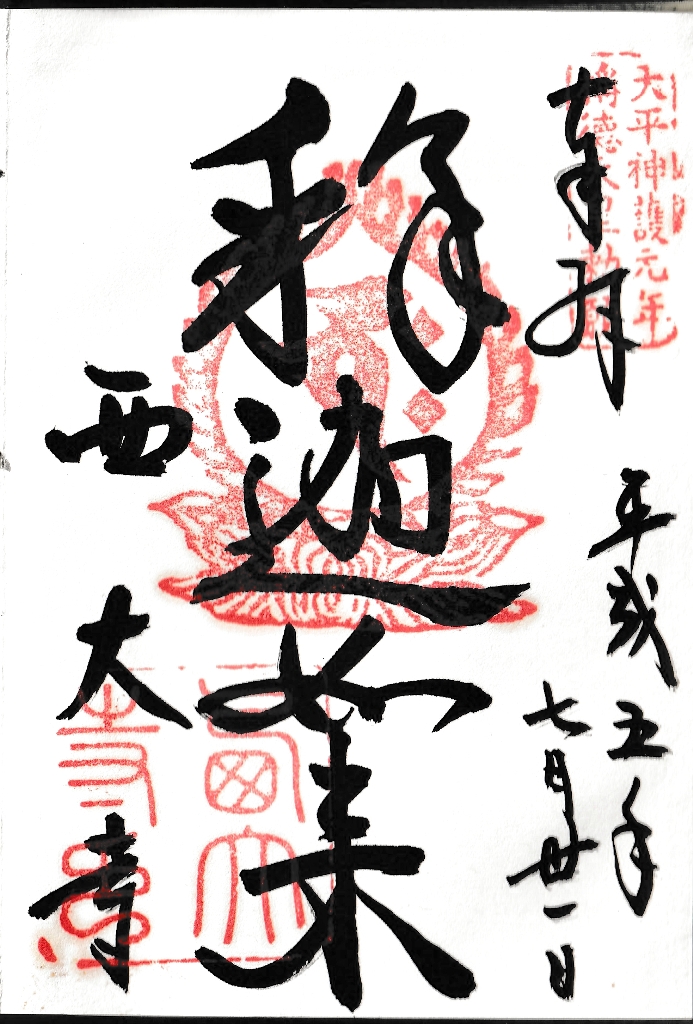 天平神護元年
稱德天皇勅願
奉拝
平成五年
七月丗一日
釋迦如来
西大寺